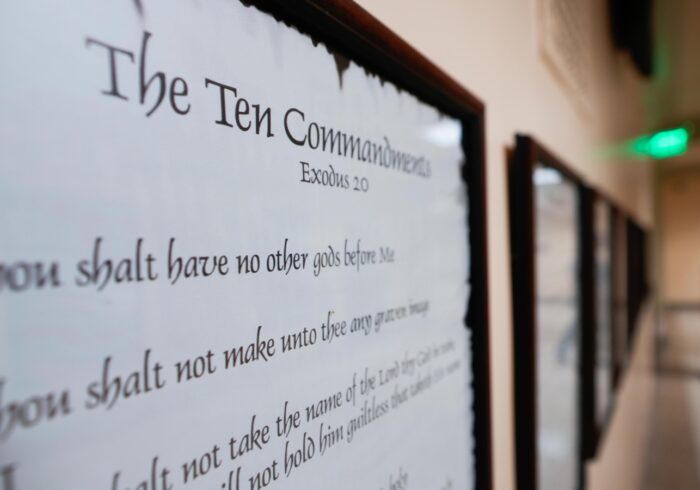 The Ten Commandments
Exodus 20
ou shalt have no other gods before Me
hou shalt not make unto thee any graven image
halt not take the name of the Lord thy God in vain,
ill not hold him guiltless that taketh His name
holy